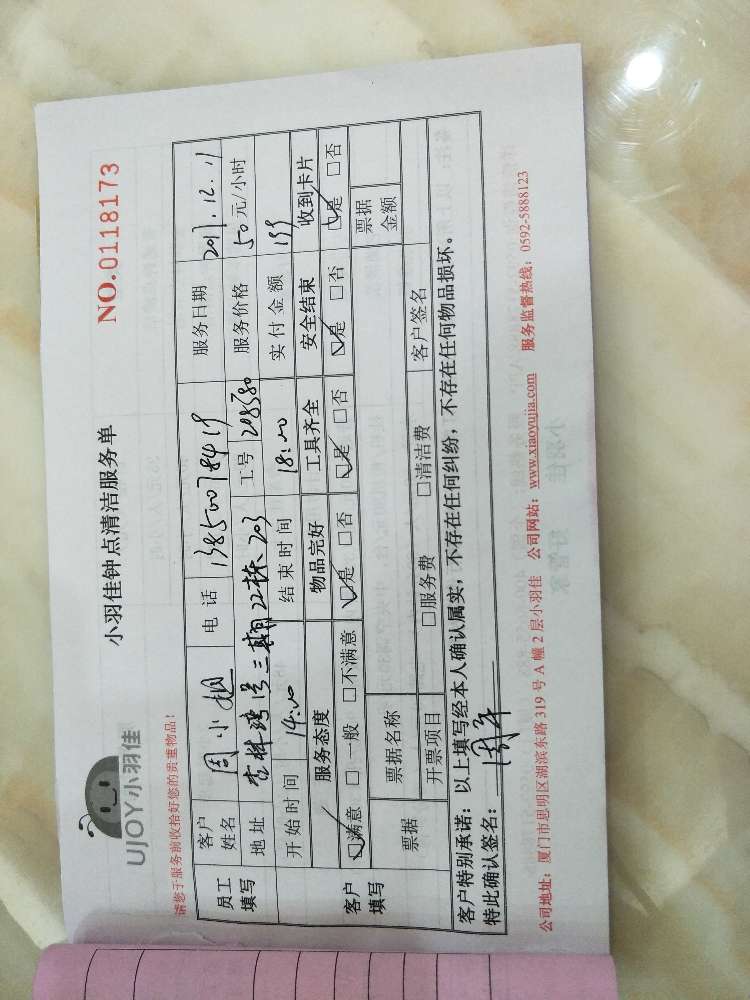 UJOY小羽佳
小羽佳钟点清洁服务单
NO.0118173
请您于服务前收拾好您的贵重物品！
员工填写 客户姓名 周小姐 电话 13850078419 服务日期 2017.12.11
地址 杏林湾湾三期22栋203 工号 208580 服务价格 50元/小时
开始时间 14:00 结束时间 18:00 实付金额 199
客户填写 服务态度 物品完好 工具齐全 安全结束 收到卡片
☑满意 □一般 □不满意 ☑是 □否 ☑是 □否 ☑是 □否 ☑是 □否
票据 票据名称 票据金额
开票项目 □服务费 □清洁费 客户签名
客户特别承诺：以上填写经本人确认属实，不存在任何纠纷，不存在任何物品损坏。
特此确认签名：周
公司地址：厦门市思明区湖滨东路319号A幢2层小羽佳 公司网站：www.xiaoyujia.com 服务监督热线：0592-5888123